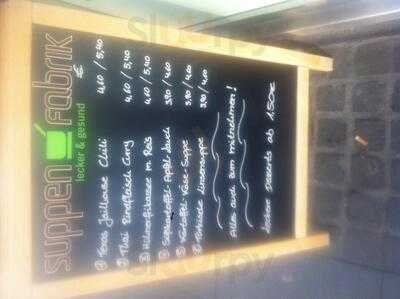 suppen fabrik
lecker & gesund
€
① Texas Jailhouse Chili 4,60 / 5,40
② Thai Rindfleisch Curry 4,60 / 5,40
③ Hühnerfrikassee m. Reis 4,60 / 5,40
④ Süßkartoffel-Apfel-Lauch 3,90 / 4,60
⑤ Kartoffel-Käse-Suppe 3,90 / 4,60
⑥ Türkische Linsensuppe 3,90 / 4,60
Alles auch zum mitnehmen!
Leckere Desserts ab 1,50€